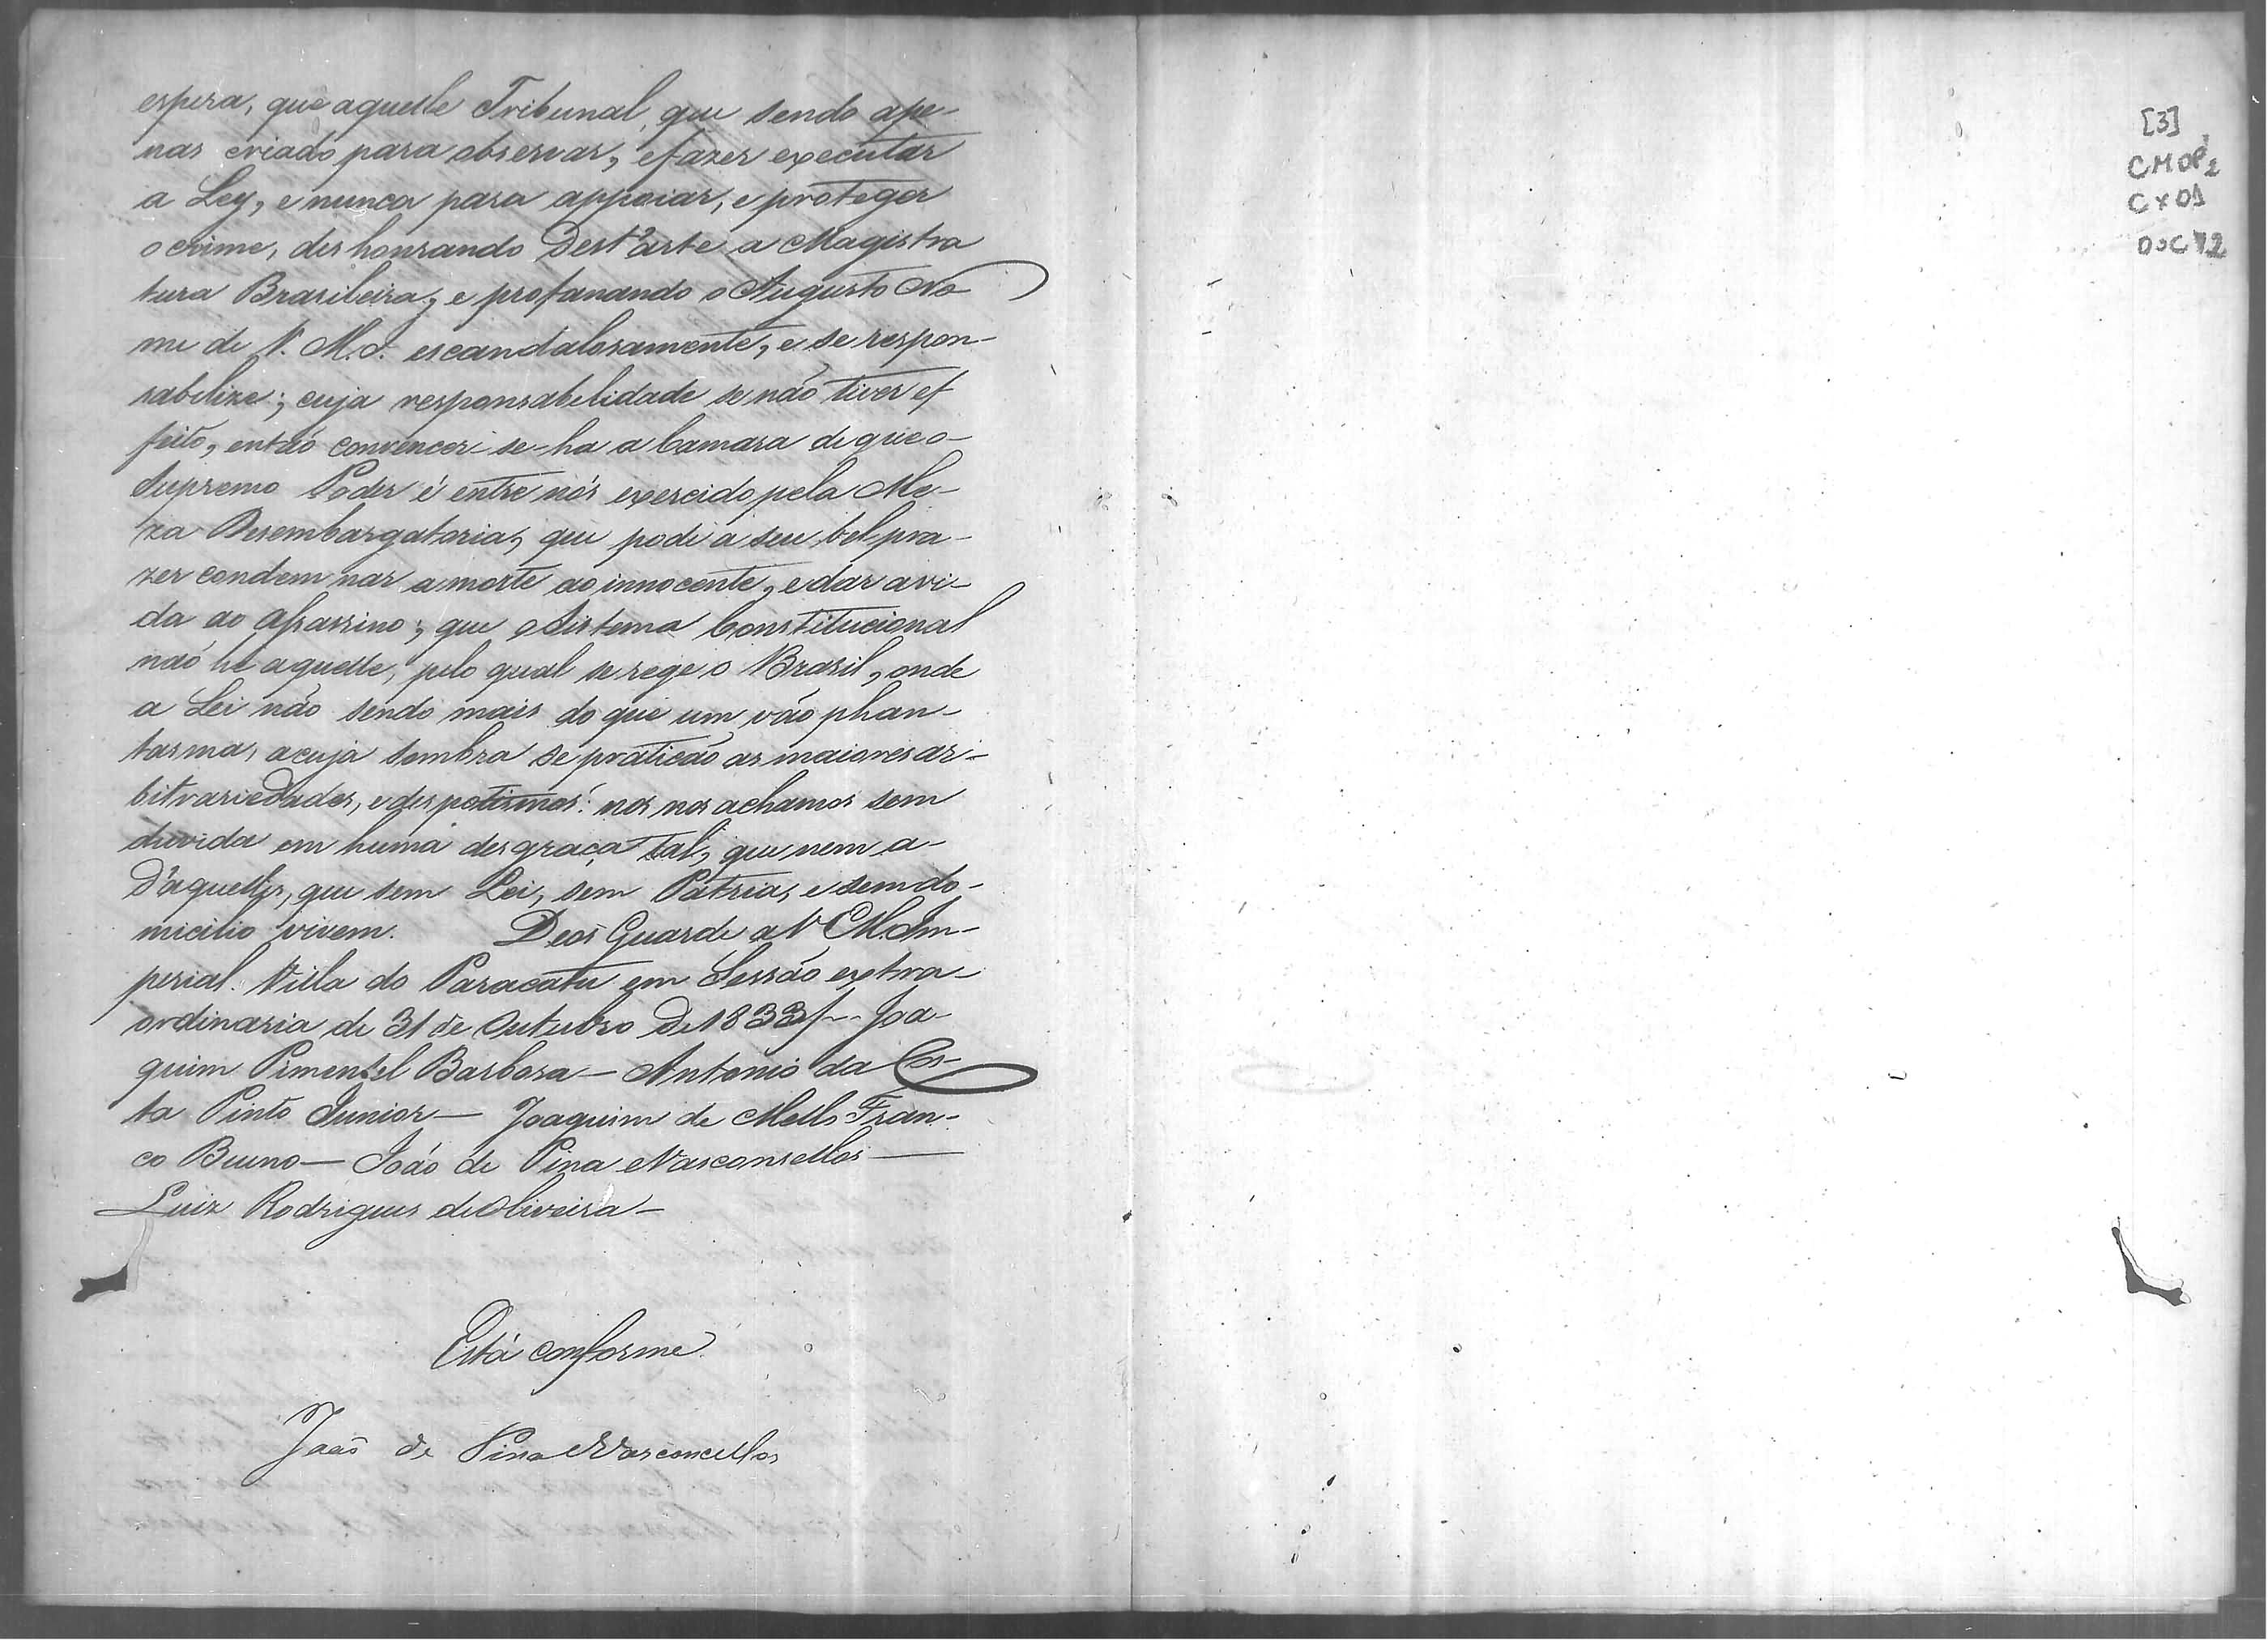 espera, que aquelle Tribunal, que sendo ape-
nas criado para observar, e fazer executar
a Ley, e nunca para appoiar, e proteger
o crime, deshonrando Dest'arte a Magistra
tura Brasileira, e profanando o Augusto No
me de V. M. I. escandalosamente, e se respon-
sabelize; cuja responsabelidade se não tiver ef
feito, então convencer-se-ha a Camara de que o-
Supremo Poder é entre nós exercido pela Me-
za Desembargatoria, que pode a seu bel pra-
zer condemnar a morte ao innocente, e dar a vi-
da ao Assassino; que o Sistema Constitucional
naõ hé aquelle, pelo qual se rege o Brasil, onde
a Lei não sendo mais do que um vão phan-
tasma, a cuja sombra se praticão as maiores ar-
bitrariedades, e despotismos: nos nos achamos sem
duvida em huma desgraça tal, que nem a-
D'aquelles, que sem Lei, sem Patria, e sem do-
micilio vivem. Deos Guarde a V. M. Im-
perial. Villa do Paracatu em Sessão extra-
ordinaria de 31 de Outubro de 1833 Joa-
quim Pimentel Barbosa — Antonio da Cos-
ta Pinto Junior — Joaquim de Mello Fran-
co Bueno — João de Pina e Vasconsellos —
Luiz Rodrigues de Oliveira —
Está conforme
João de Pina e Vasconcellos
[3]
CMOP2
CX01
DOC 12